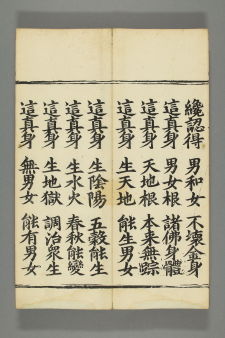 纔認得 男和女 不壞金身
這真身 男女根 諸佛身體
這真身 天地根 本來無踪
這真身 生天地 能生男女
這真身 生陰陽 五穀能生
這真身 生水火 春秋能變
這真身 生地獄 調治衆生
這真身 無男女 能有男女